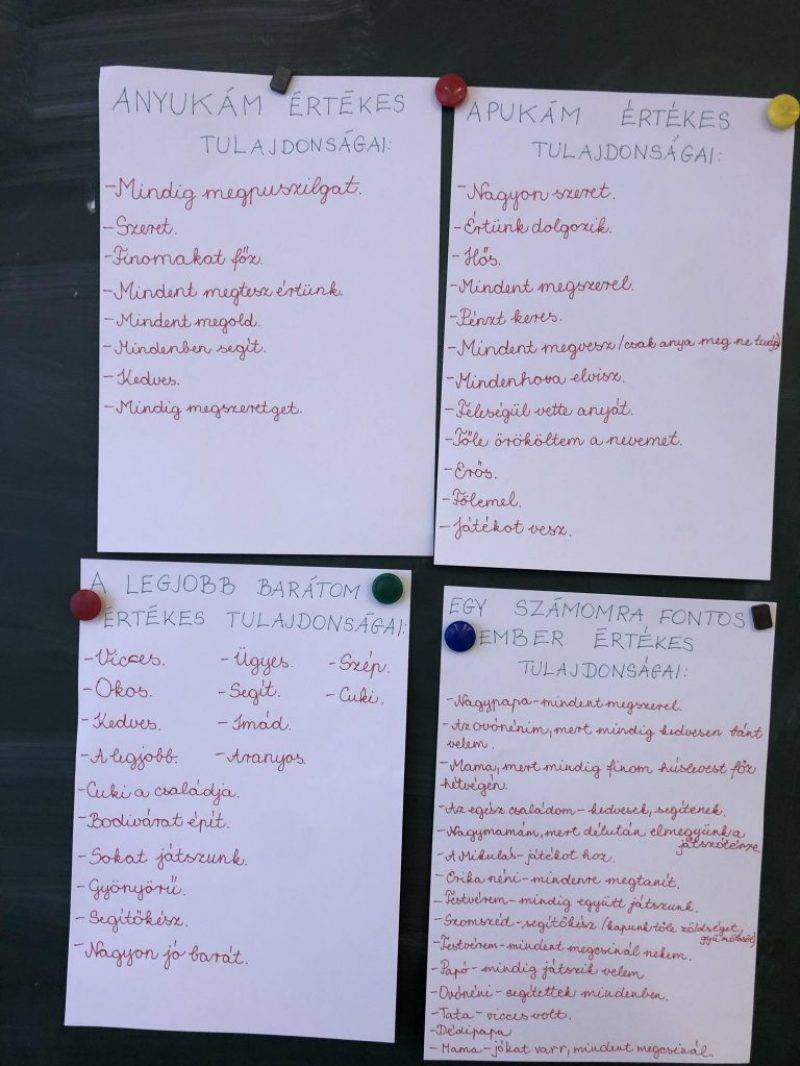 ANYUKÁM ÉRTÉKES
TULAJDONSÁGAI:
-Mindig megpuszilgat.
-Szeret.
-Finomakat főz.
-Mindent megtesz értünk.
-Mindent megold.
-Mindenben segít.
-Kedves.
-Mindig megszeretget.
APUKÁM ÉRTÉKES
TULAJDONSÁGAI:
-Nagyon szeret.
-Értünk dolgozik.
-Hős.
-Mindent megszerel.
-Pénzt keres.
-Mindent megvesz /csak anya meg ne tudj)
-Mindenhova elvisz.
-Feleségül vette anyát.
-Tőle örököltem a nevemet.
-Erős.
-Fölemel.
-Játékot vesz.
A LEGJOBB BARÁTOM
ÉRTÉKES TULAJDONSÁGAI:
-Vicces. -Ügyes. -Szép.
-Okos. -Segít. -Cuki.
-Kedves. -Imád.
-A legjobb. -Aranyos.
-Cuki a családja.
-Bodivárat épít.
-Sokat játszunk.
-Gyönyörű.
-Segítőkész.
-Nagyon jó barát.
EGY SZÁMOMRA FONTOS
EMBER ÉRTÉKES
TULAJDONSÁGAI:
-Nagypapa-mindent megszerel.
-Az ovónénim, mert mindig kedvesen bánt
velem.
-Mama, mert mindig finom húslevest főz
hétvégén.
-Az egész családom-kedvesek, segítenek.
-Nagymamám, mert délután elmegyünk a
játszótérre.
-A Mikulás-játékot hoz.
-Erika néni-mindenre megtanít.
-Testvérem-mindig együtt játszunk.
-Szomszéd-segítőkész /kapunk tőle zöldséget,
gyümölcsöt)
-Testvérem-mindent megcsinál nekem.
-Papó-mindig játszik velem
-Ovónéni-segítettek mindenben.
-Tata-vicces volt.
-Dédipapa
-Mama-jókat varr, mindent megcsinál.